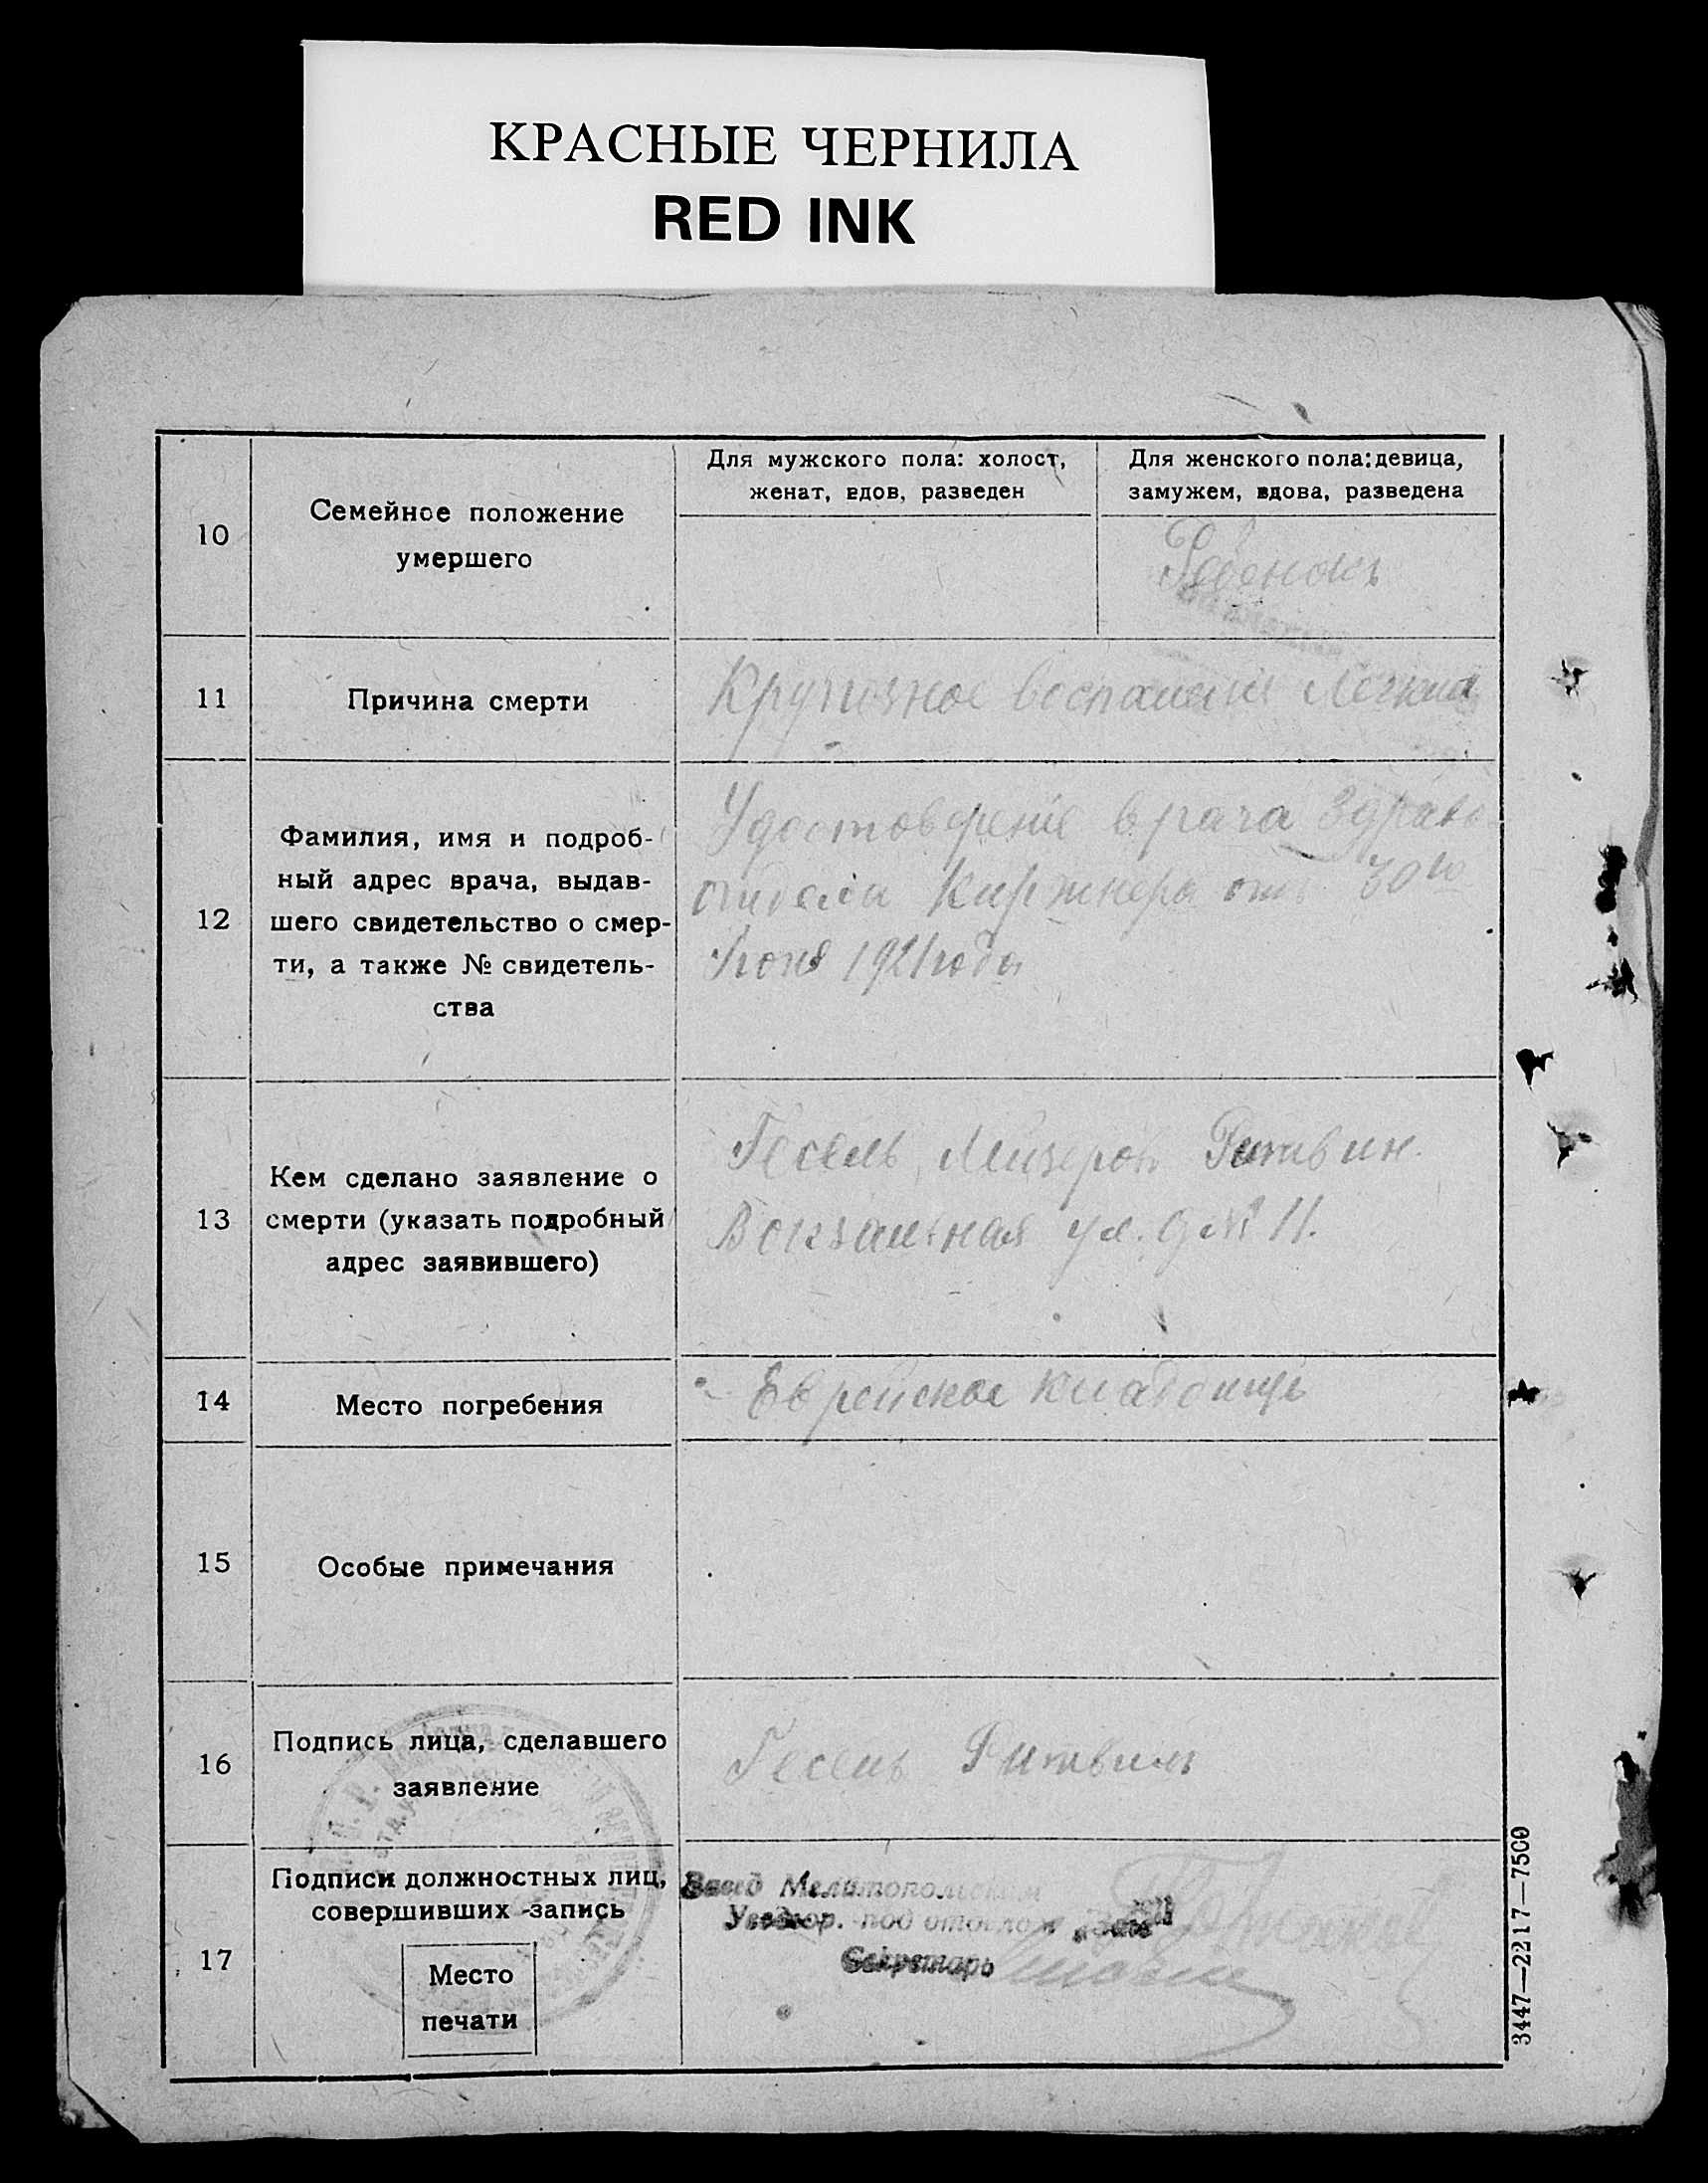 КРАСНЫЕ ЧЕРНИЛА
RED INK
10
Семейное положение
умершего
Для мужского пола: холост,
женат, вдов, разведен
Для женского пола: девица,
замужем, вдова, разведена
Ребенокъ
11
Причина смерти
Крупозное воспаление Легкихъ
12
Фамилия, имя и подроб-
ный адрес врача, выдав-
шего свидетельство о смер-
ти, а также № свидетель-
ства
Удостоверение врача Здрав-
отдела Киржнера отъ 30го
Июня 1921 года
13
Кем сделано заявление о
смерти (указать подробный
адрес заявившего)
Гесель Лейзеров Ритвин.
Вокзальная ул. д № 11.
14
Место погребения
Еврейское кладбище
15
Особые примечания
16
Подпись лица, сделавшего
заявление
Гесель Ритвинъ
17
Подписи должностных лиц,
совершивших запись
Место
печати
Завед Мелитопольским
под отделом
Секретарь
3447—2217—7500